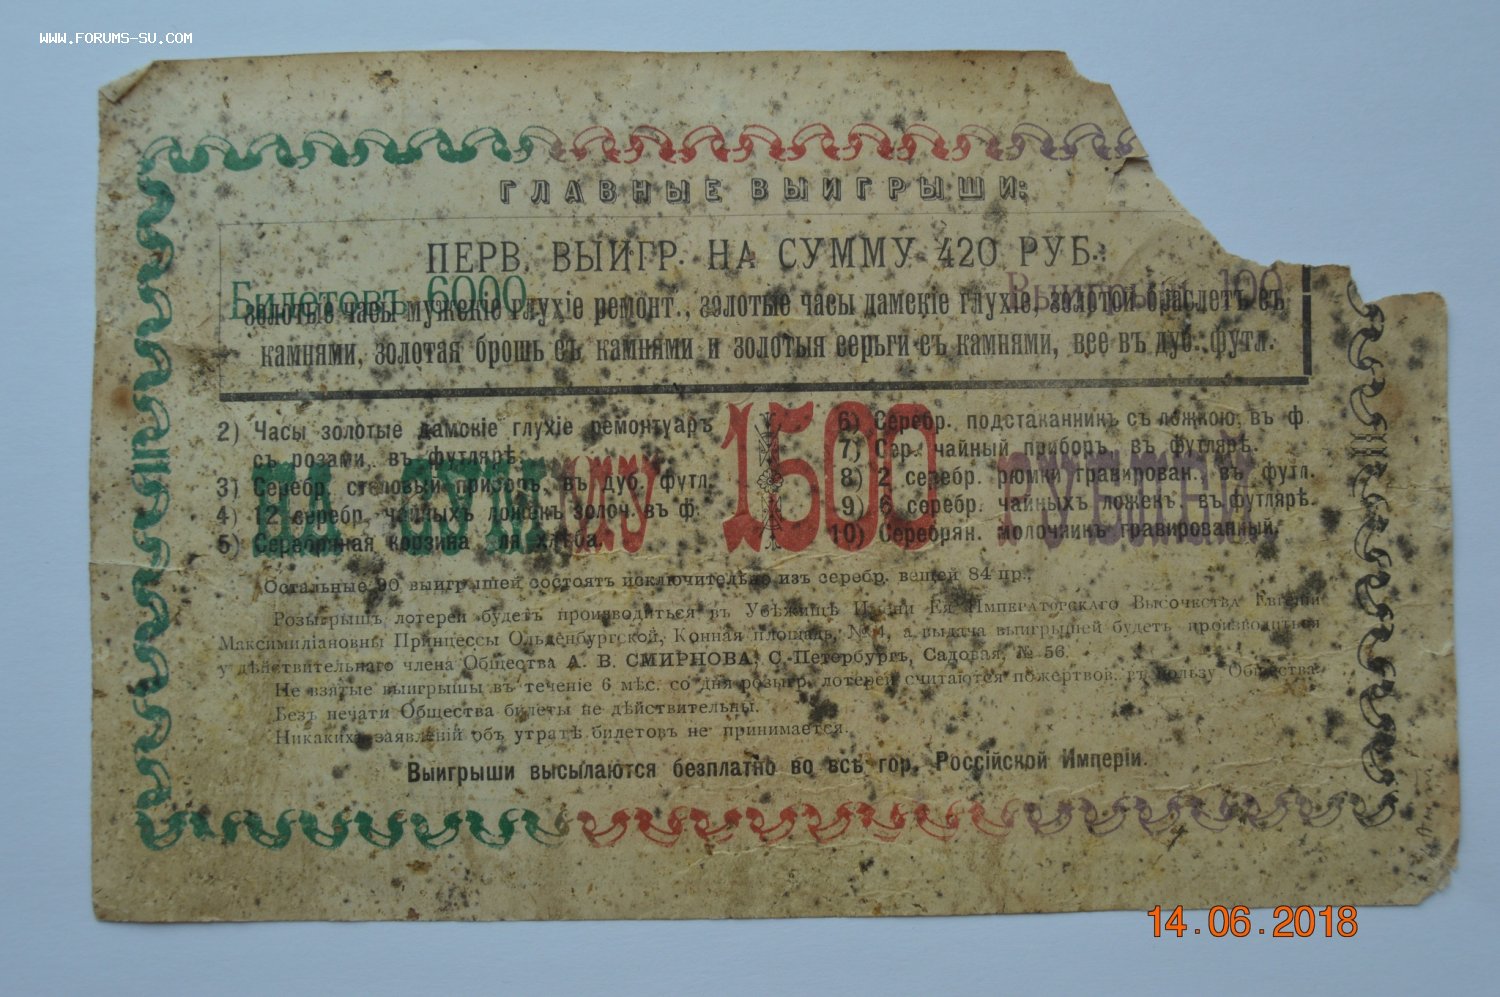 WWW.FORUMS-SU.COM
ГЛАВНЫЕ ВЫИГРЫШИ:
ПЕРВ. ВЫИГР. НА СУММУ 420 РУБ.:
Билетовъ 6000
Выигрыш 100
золотые часы мужскіе глухіе ремонт., золотые часы дамскіе глухіе, золотой браслетъ съ
камнями, золотая брошь съ камнями и золотыя серьги съ камнями, все въ дуб. футл.
2) Часы золотые дамскіе глухіе ремонтуаръ
съ розами, въ футлярѣ.
3) Серебр. столовый приборъ въ дуб. футл.
4) 12 серебр. чайныхъ ложекъ золоч. въ ф.
5) Серебряная корзина для хлѣба.
1500 РУБЛЕЙ
6) Серебр. подстаканникъ съ ложкою въ ф.
7) Сер. чайный приборъ, въ футлярѣ.
8) 2 серебр. рюмки гравирован., въ футл.
9) 6 серебр. чайныхъ ложекъ, въ футлярѣ.
10) Серебрян. молочникъ гравированный.
Остальные 90 выигрышей состоятъ исключительно изъ серебр. вещей 84 пр.
Розыгрышъ лотереи будетъ производиться въ Убѣжищѣ Имени Ея Императорскаго Высочества Евгеніи
Максимиліановны Принцессы Ольденбургской, Конная площадь, № 4, а выдача выигрышей будетъ производиться
у дѣйствительнаго члена Общества А. В. СМИРНОВА, С.-Петербургъ, Садовая, № 56.
Не взятые выигрышы въ теченіе 6 мѣс. со дня розыгр. лотереи считаются пожертвов. въ пользу Общества.
Безъ печати Общества билеты не дѣйствительны.
Никакихъ заявленій объ утратѣ билетовъ не принимается.
Выигрыши высылаются безплатно во всѣ гор. Россійской Имперіи.
14.06.2018